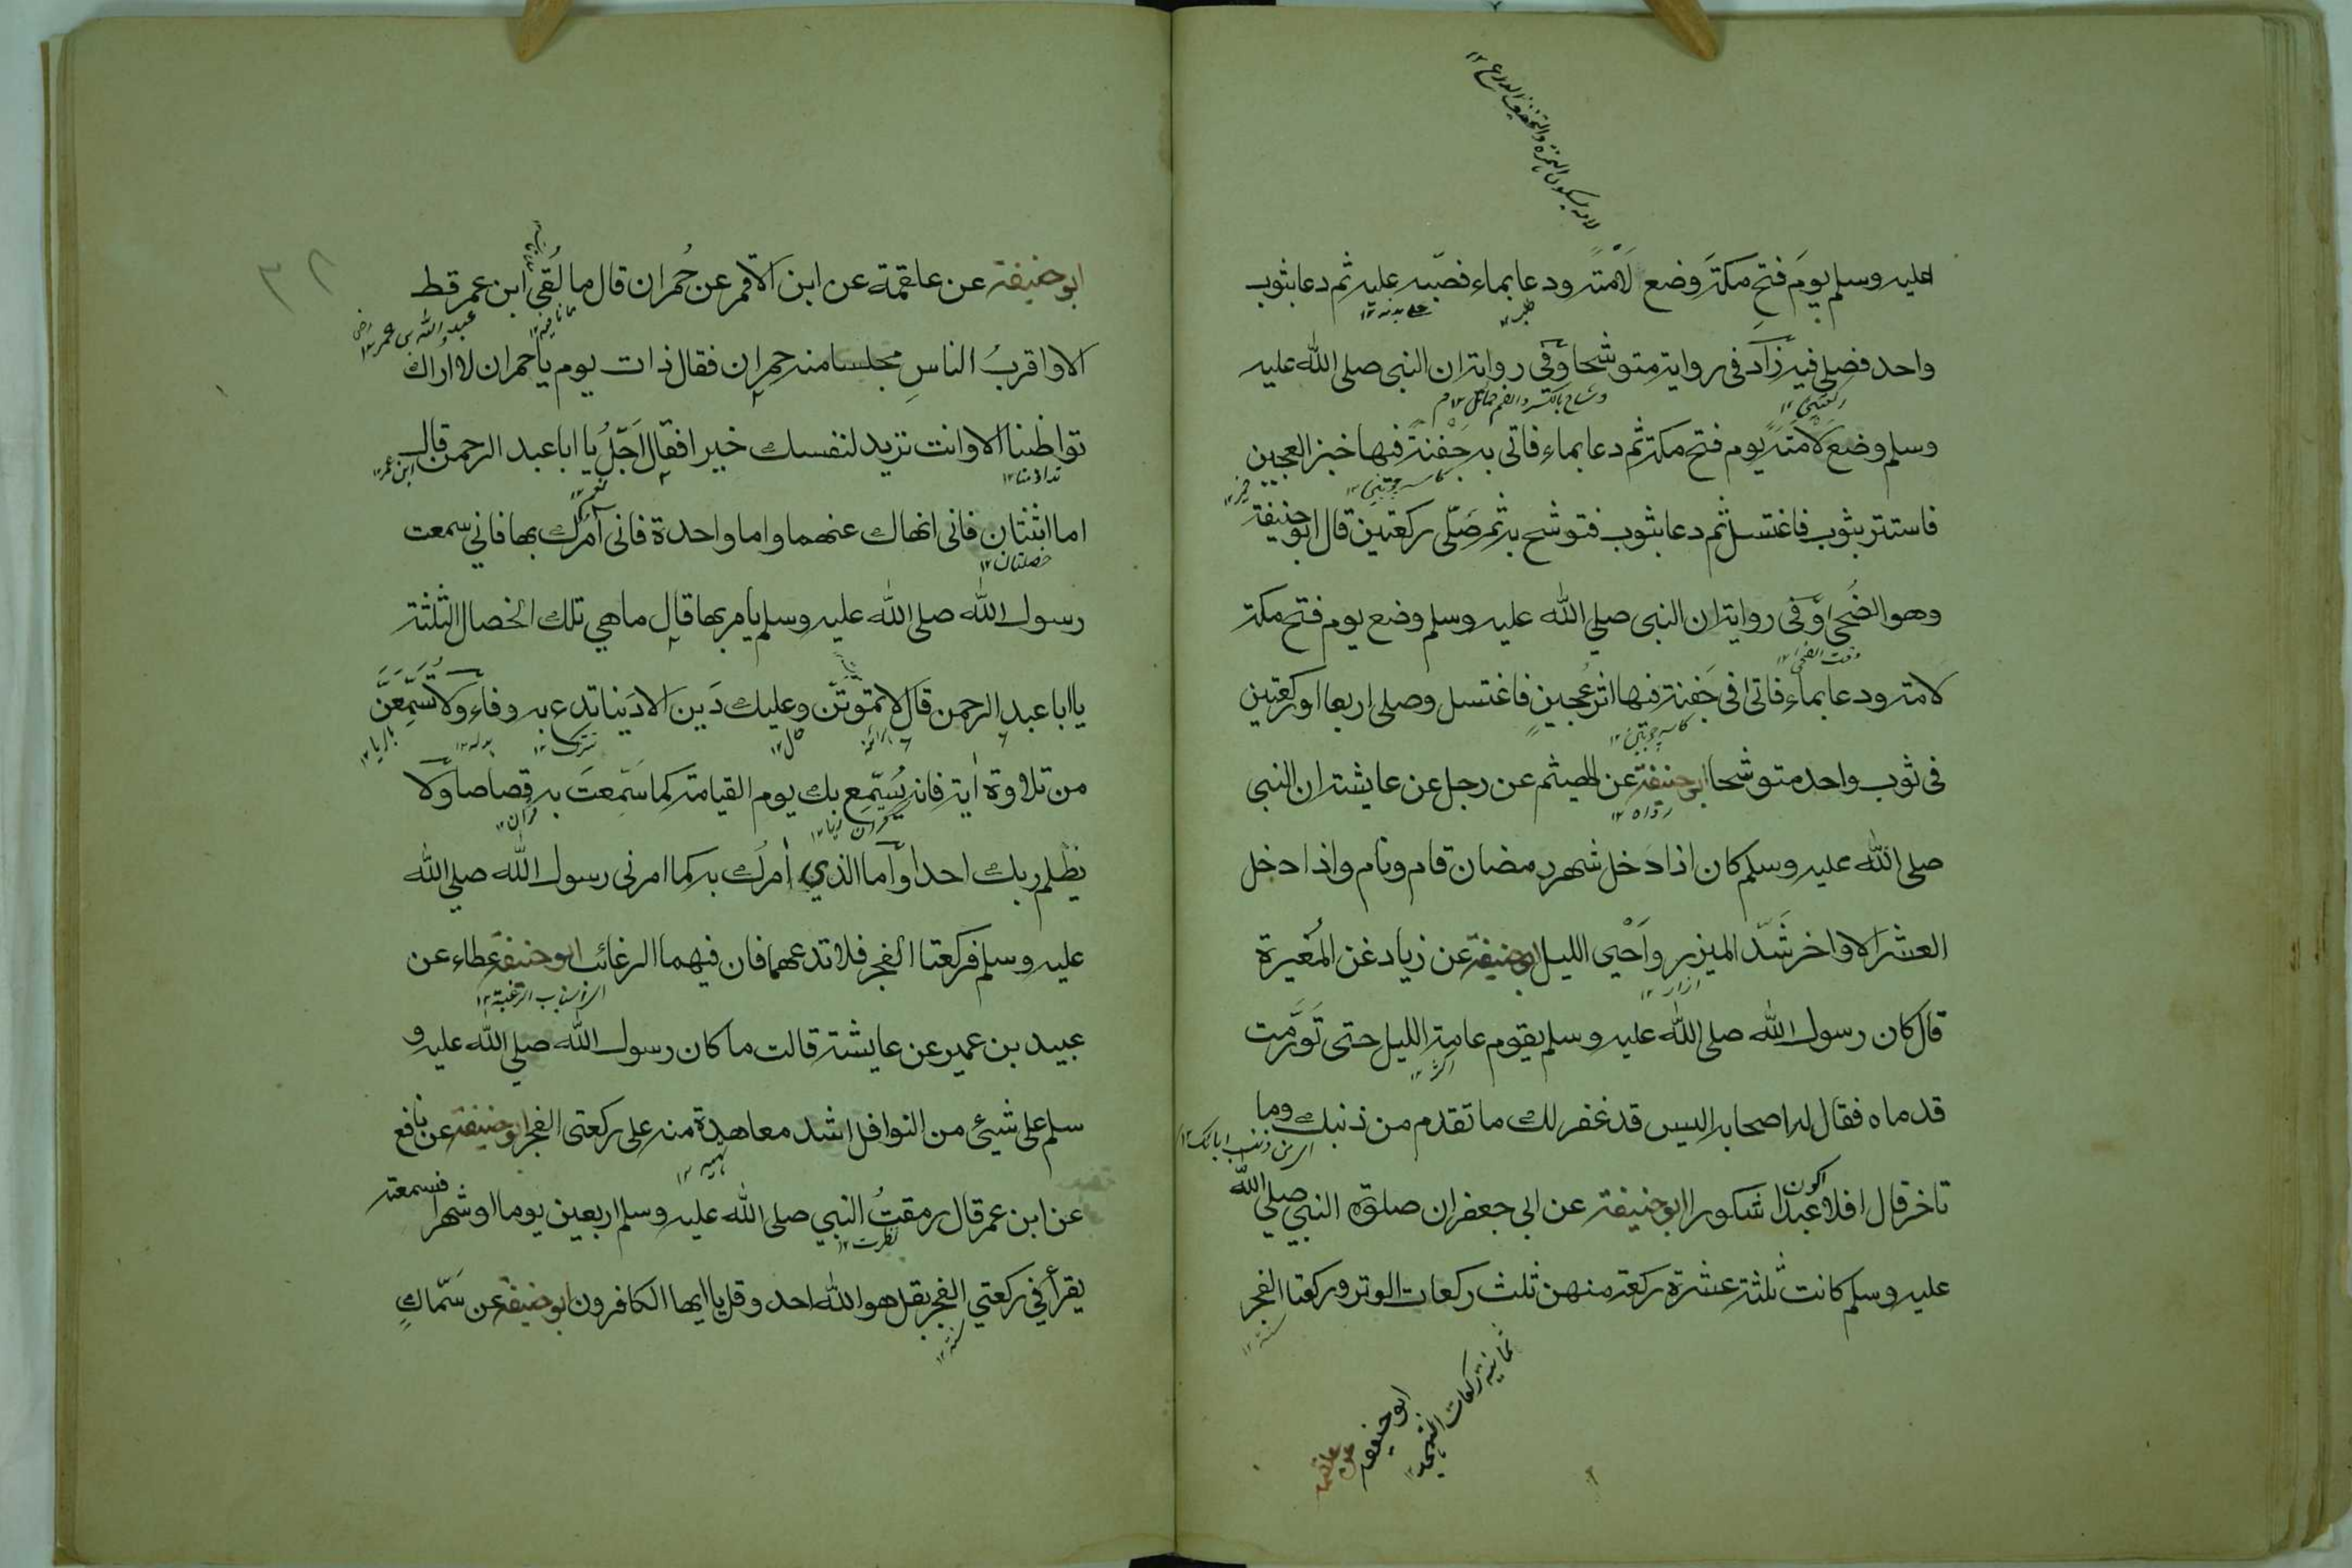 عليه وسلم يومَ فتح مكةَ وضع لَأْمَتَه ودعا بماء فصبّه عليه ثم دعا بثوب
واحد فصلى فيه زَاَد فى رواية متوشحا وَّفى رواية ان النبى صلى الله عليه
وسلم وضع لَامَتَه يوم فتح مكة ثم دعا بماء فاتى به جَفْنَة فيها خبز العجين
فاستتر بثوب فاغتسل ثم دعا بثوب فتوشح به ثم صَلّى ركعتين قال ابو حنيفة
وهو الضُحى وَّفى رواية ان النبى صلي الله عليه وسلم وضع يوم فتح مكة
لامته ودعا بماء فاتى فى جَفنة فيها اثر عُجينٍ فاغتسل وصلى اربعا او ركعتين
فى ثوب واحد متوشحا ابو حنيفة عن الهيثم عن رجل عن عايشة ان النبى
صلى الله عليه وسلم كان اذا دخل شهر رمضان قام ونام واذا دخل
العشر الاواخر شَدّ الميزر واَحْيى الليل ابو حنيفة عن زياد عن المُغيرة
قال كان رسول الله صلى الله عليه وسلم يقوم عامة الليل حتى تَوَرَّمت
قدماه فقال له اصحابه اليس قد غفر لك ما تقدم من ذنبك وما
تاخر قال افلا اكون عبدا شكورا ابو حنيفة عن ابى جعفر ان صلوة النبي صلي الله
عليه وسلم كانت ثلثة عشرة ركعة منهن ثلث ركعات الوتر وركعتا الفجر
ثمانية ركعات التهجد
ابو حنيفة
عن علقمة
ابو حنيفة عن علقمة عن ابن الاقمر عن حُمران قال ما لُقِيَ ابن عمر قط
الا واقربُ الناسِ مجلسا منه حمران فقال ذات يوم يا حمران لا اراك
تواظبنا الا وانت تريد لنفسك خيرا فقال اَجَلْ يا ابا عبد الرحمن قال
اما اثنتان فانى انهاك عنهما واما واحدة فانى آمرك بها فاني سمعت
رسول الله صلى الله عليه وسلم يامر بها قال ما هي تلك الخصال الثلثة
يا ابا عبد الرحمن قال لا تموتَنّ وعليك دَين الا دَينا تدع به وفاء وَّلا تُسَمِّعَنَّ
من تلاوة اٰية فانه يُسَمّع بك يوم القيامة كما سَمّعتَ به قصاصا وّلا
يظلم ربك احدا وّاما الذي اٰمرك به كما امرنى رسول الله صلي الله
عليه وسلم فركعتا الفجر فلا تدعهما فان فيهما الرغائب ابو حنيفة عطاء عن
عبيد بن عمير عن عايشة قالت ما كان رسول الله صلي الله عليه و
سلم على شيئ من النوافل اشد معاهدة منه على ركعتى الفجر ابو حنيفة عن نافع
عن ابن عمر قال رمقتُ النبي صلى الله عليه وسلم اربعين يوما او شهرا فسمعته
يقرأ في ركعتي الفجر بقل هو الله احد وقل يا ايها الكافرون ابو حنيفة عن سَمّاكٍ